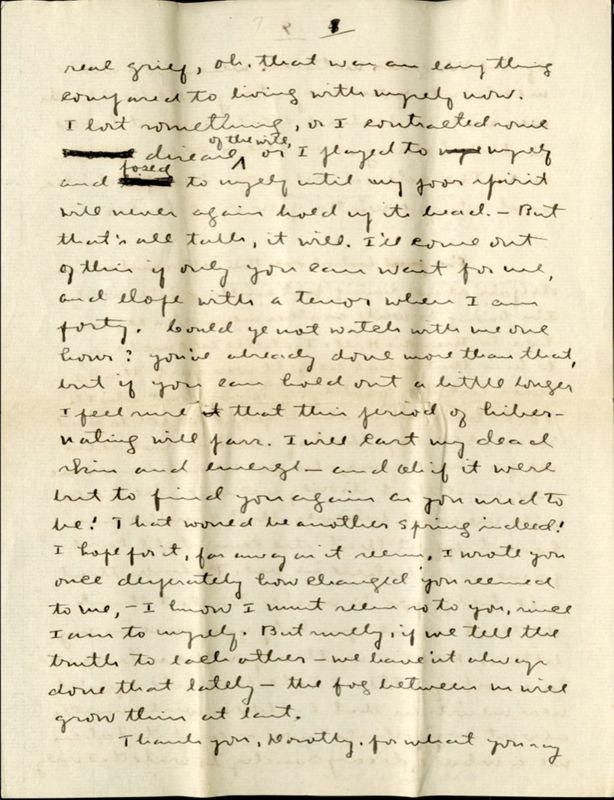 8
real grief, oh, that was an easy thing
compared to living with myself now.
I lost something, or I contracted some
disease of the will, or I played to myself
and posed to myself until my poor spirit
will never again hold up its head. — But
that's all talk, it will. I'll come out
of this if only you can wait for me,
and elope with a tenor when I am
forty. Could ye not watch with me one
hour? You've already done more than that,
but if you can hold out a little longer
I feel sure that this period of hiber-
nating will pass. I will cast my dead
skin and emerge — and oh if it were
but to find you again as you used to
be! That would be another spring indeed!
I hope for it, far away as it seems. I wrote you
once desperately how changed you seemed
to me, — I know I must seem so to you, since
I am to myself. But really, if we tell the
truth to each other — we haven't always
done that lately — the fog between us will
grow thin at last.
Thank you, Dorothy, for what you say